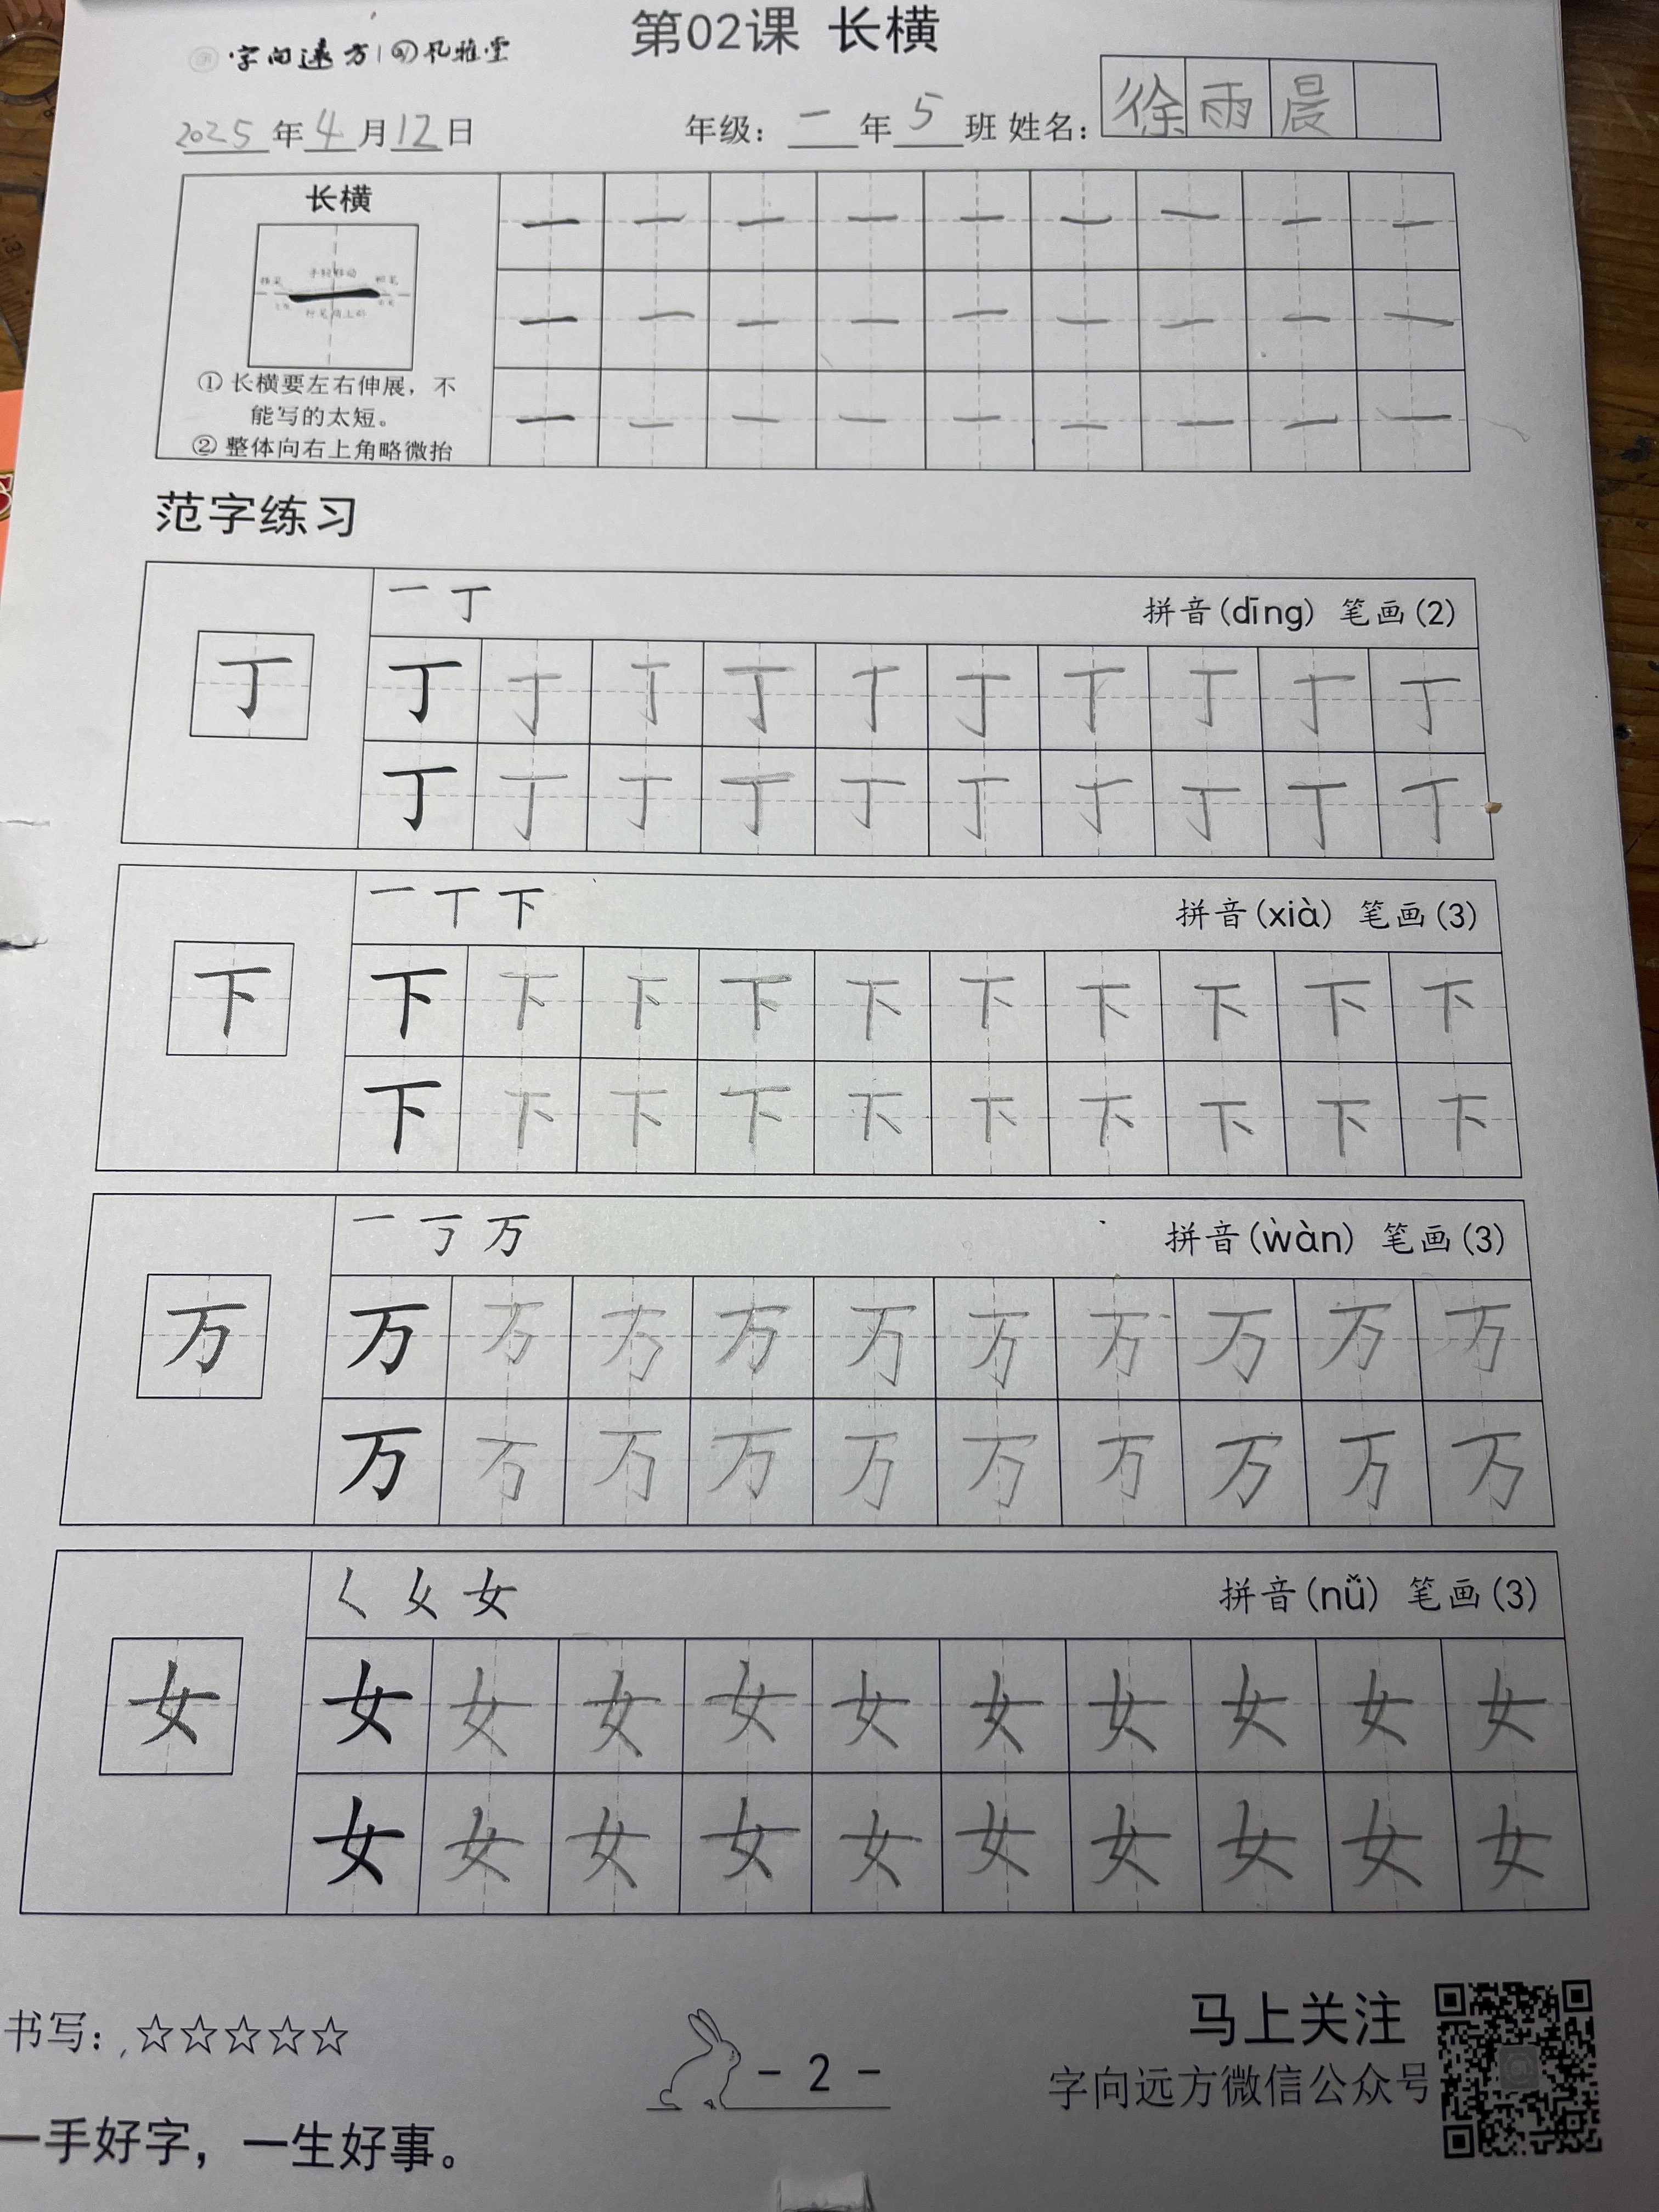 第02课 长横
字向远方 | 孔雅堂
2025年4月12日 年级：一年5班 姓名：徐雨晨
长横
一 一 一 一 一 一 一 一 一
一 一 一 一 一 一 一 一 一
一 一 一 一 一 一 一 一 一
① 长横要左右伸展，不
能写的太短。
② 整体向右上角略微抬
范字练习
一 丁 拼音(dīng) 笔画(2)
丁
丁 丁 丁 丁 丁 丁 丁 丁 丁 丁
丁 丁 丁 丁 丁 丁 丁 丁 丁 丁
一 丅 下 拼音(xià) 笔画(3)
下
下 下 下 下 下 下 下 下 下 下
下 下 下 下 下 下 下 下 下 下
一 丂 万 拼音(wàn) 笔画(3)
万
万 万 万 万 万 万 万 万 万 万
万 万 万 万 万 万 万 万 万 万
女 拼音(nǚ) 笔画(3)
女
女 女 女 女 女 女 女 女 女 女
女 女 女 女 女 女 女 女 女 女
书写：☆☆☆☆☆
- 2 -
马上关注
字向远方微信公众号
一手好字，一生好事。